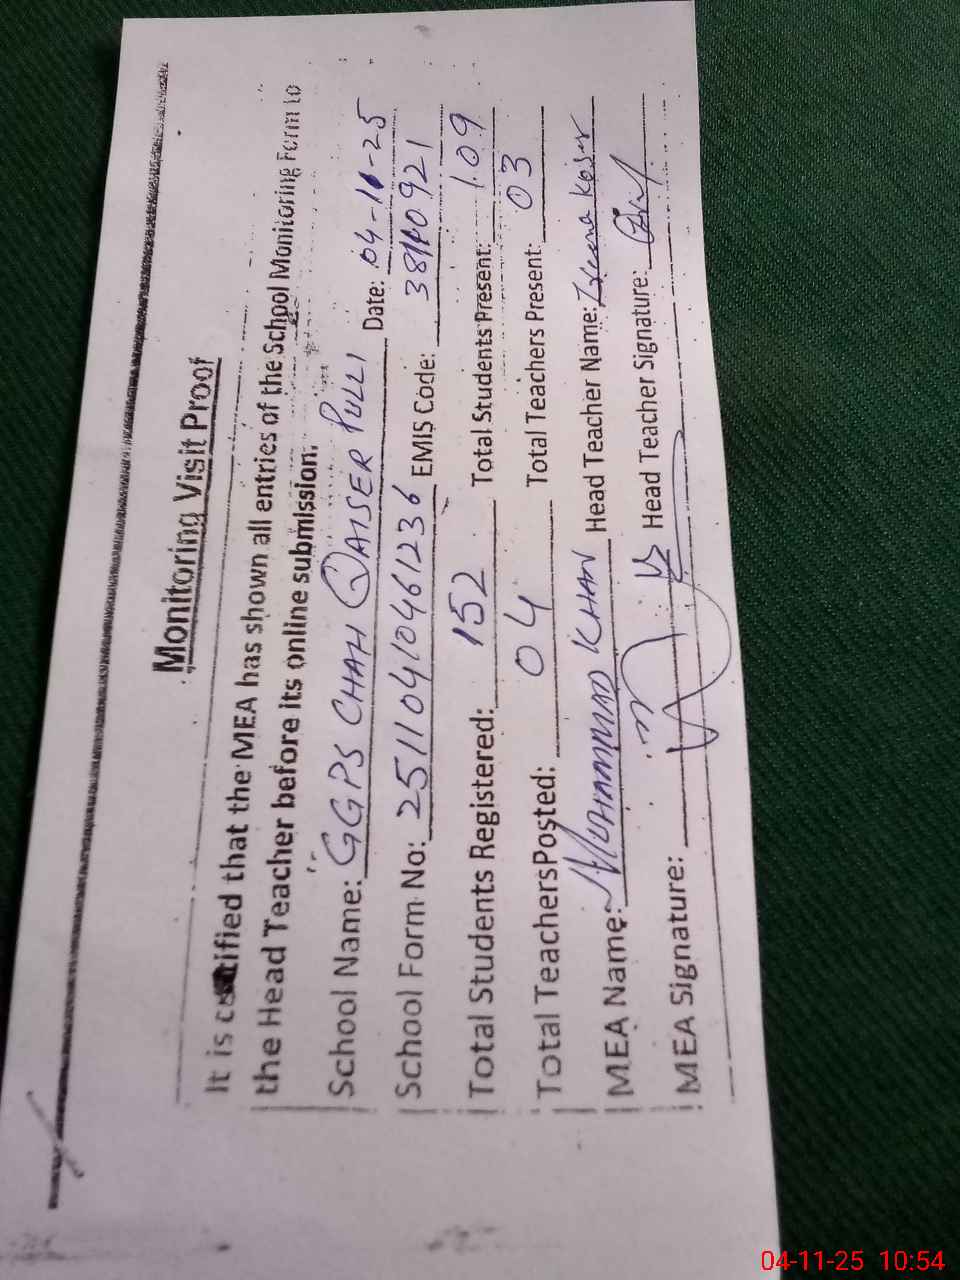 Monitoring Visit Proof
It is certified that the MEA has shown all entries of the School Monitoring Form to
the Head Teacher before its online submission.
School Name: GGPS CHAH QAISER PULLI Date: 04-11-25
School Form No: 25110410461236 EMIS Code: 38110921
Total Students Registered: 152 Total Students Present: 109
Total TeachersPosted: 04 Total Teachers Present: 03
MEA Name: MUHAMMAD KHAN Head Teacher Name: Kosar
MEA Signature: Head Teacher Signature:
04-11-25 10:54